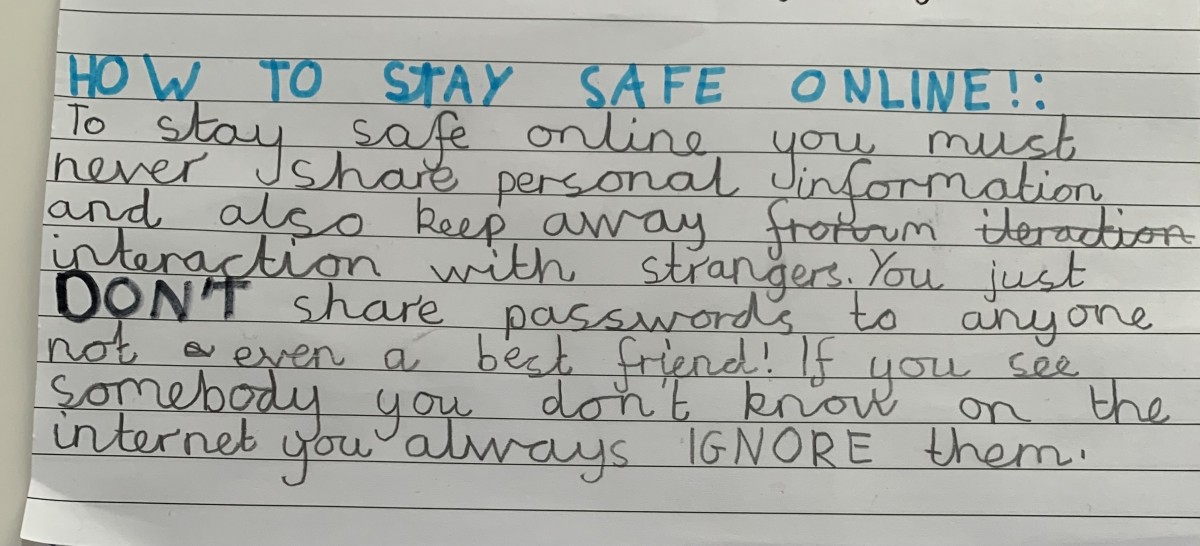 HOW TO STAY SAFE ONLINE!:
To stay safe online you must
never share personal information
and also keep away from iteraction
interaction with strangers. You just
DON'T share passwords to anyone
not even a best friend! If you see
somebody you don't know on the
internet you always IGNORE them.